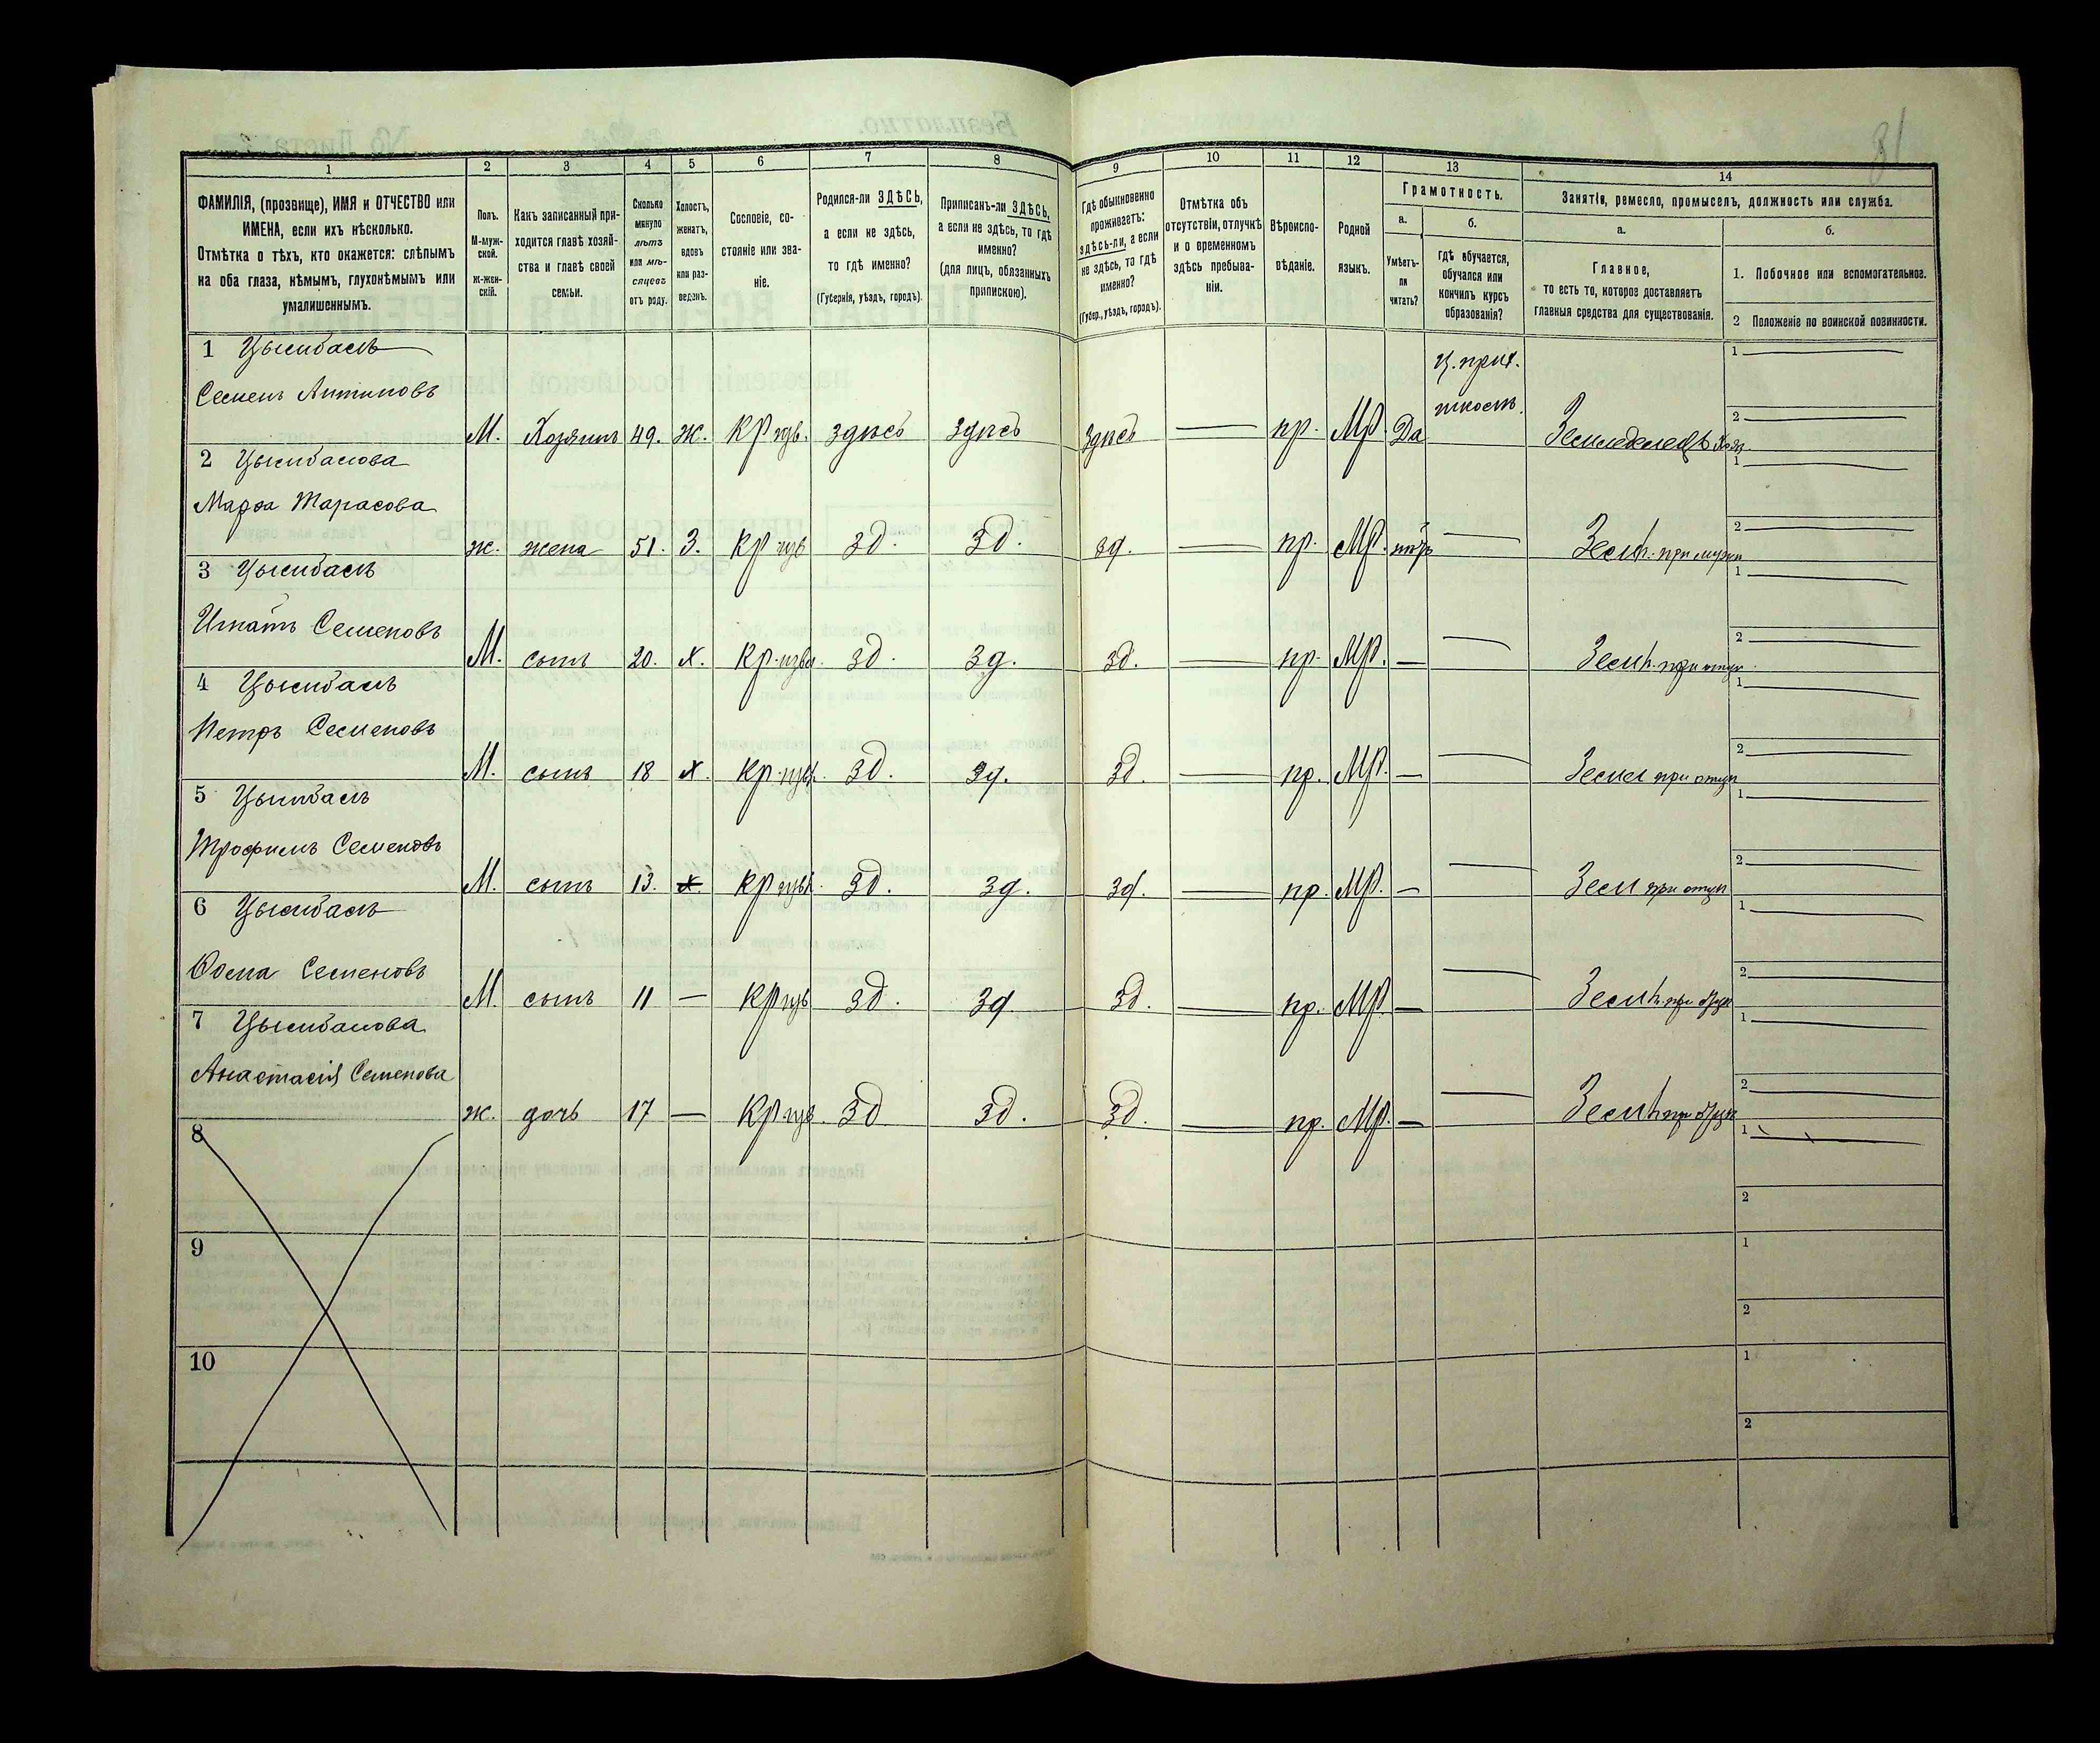 81
1 2 3 4 5 6 7 8 9 10 11 12 13 14
ФАМИЛІЯ, (прозвище), ИМЯ и ОТЧЕСТВО или
ИМЕНА, если ихъ нѣсколько.
Отмѣтка о тѣхъ, кто окажется: слѣпымъ
на оба глаза, нѣмымъ, глухонѣмымъ или
умалишеннымъ.
Полъ.
М-муж-
ской.
ж-жен-
скій.
Какъ записанный при-
ходится главѣ хозяй-
ства и главѣ своей
семьи.
Сколько
минуло
лѣтъ
или мѣ-
сяцевъ
отъ роду.
Холостъ,
женатъ,
вдовъ
или раз-
веденъ.
Сословіе, со-
стояніе или зва-
ніе.
Родился-ли ЗДѢСЬ,
а если не здѣсь,
то гдѣ именно?
(Губернія, уѣздъ, городъ).
Приписанъ-ли ЗДѢСЬ,
а если не здѣсь, то гдѣ
именно?
(для лицъ, обязанныхъ
припискою).
Гдѣ обыкновенно
проживаетъ:
здѣсь-ли, а если
не здѣсь, то гдѣ
именно?
(Губер., уѣздъ, городъ).
Отмѣтка объ
отсутствіи, отлучкѣ
и о временномъ
здѣсь пребыва-
ніи.
Вѣроиспо-
вѣданіе.
Родной
языкъ.
Грамотность.
а.
Умѣетъ-
ли
читать?
б.
гдѣ обучается,
обучался или
кончилъ курсъ
образованія?
Занятія, ремесло, промыселъ, должность или служба.
а.
Главное,
то есть то, которое доставляетъ
главныя средства для существованія.
б.
1. Побочное или вспомогательное.
2 Положеніе по воинской повинности.
1 Цымбалъ
Семенъ Антиповъ
М. Хозяинъ 49. ж. кр здѣсь здѣсь здѣсь — пр. МР. Да Земледелецъ хоз.
1 —
2 —
2 Цымбалова
Марфа Тарасова
ж. жена 51. З. кр зд. зд. зд. — пр. МР. — Земл. при мужи
1 —
2 —
3 Цымбалъ
Игнатъ Семеновъ
М. сынъ 20. х. кр. зд. зд. зд. — пр. МР. — — Земл. при отци
1 —
2 —
4 Цымбалъ
Петръ Семеновъ
М. сынъ 18 х. кр. зд. зд. зд. — пр. МР. — — Земл при отци
1 —
2 —
5 Цымбалъ
Трофимъ Семеновъ
М. сынъ 13. х. кр зд. зд. зд. — пр. МР. — — Земл при отци
1 —
2 —
6 Цымбалъ
Фома Семеновъ
М. сынъ 11 — кр зд. зд зд. — пр. МР. — — Земл. при отци
1 —
2 —
7 Цымбалова
Анастасія Семенова
ж. дочь 17 — кр зд зд. зд. — пр. МР. — — Земл при отци
1 —
2 —
8
1
2
9
1
2
10
1
2